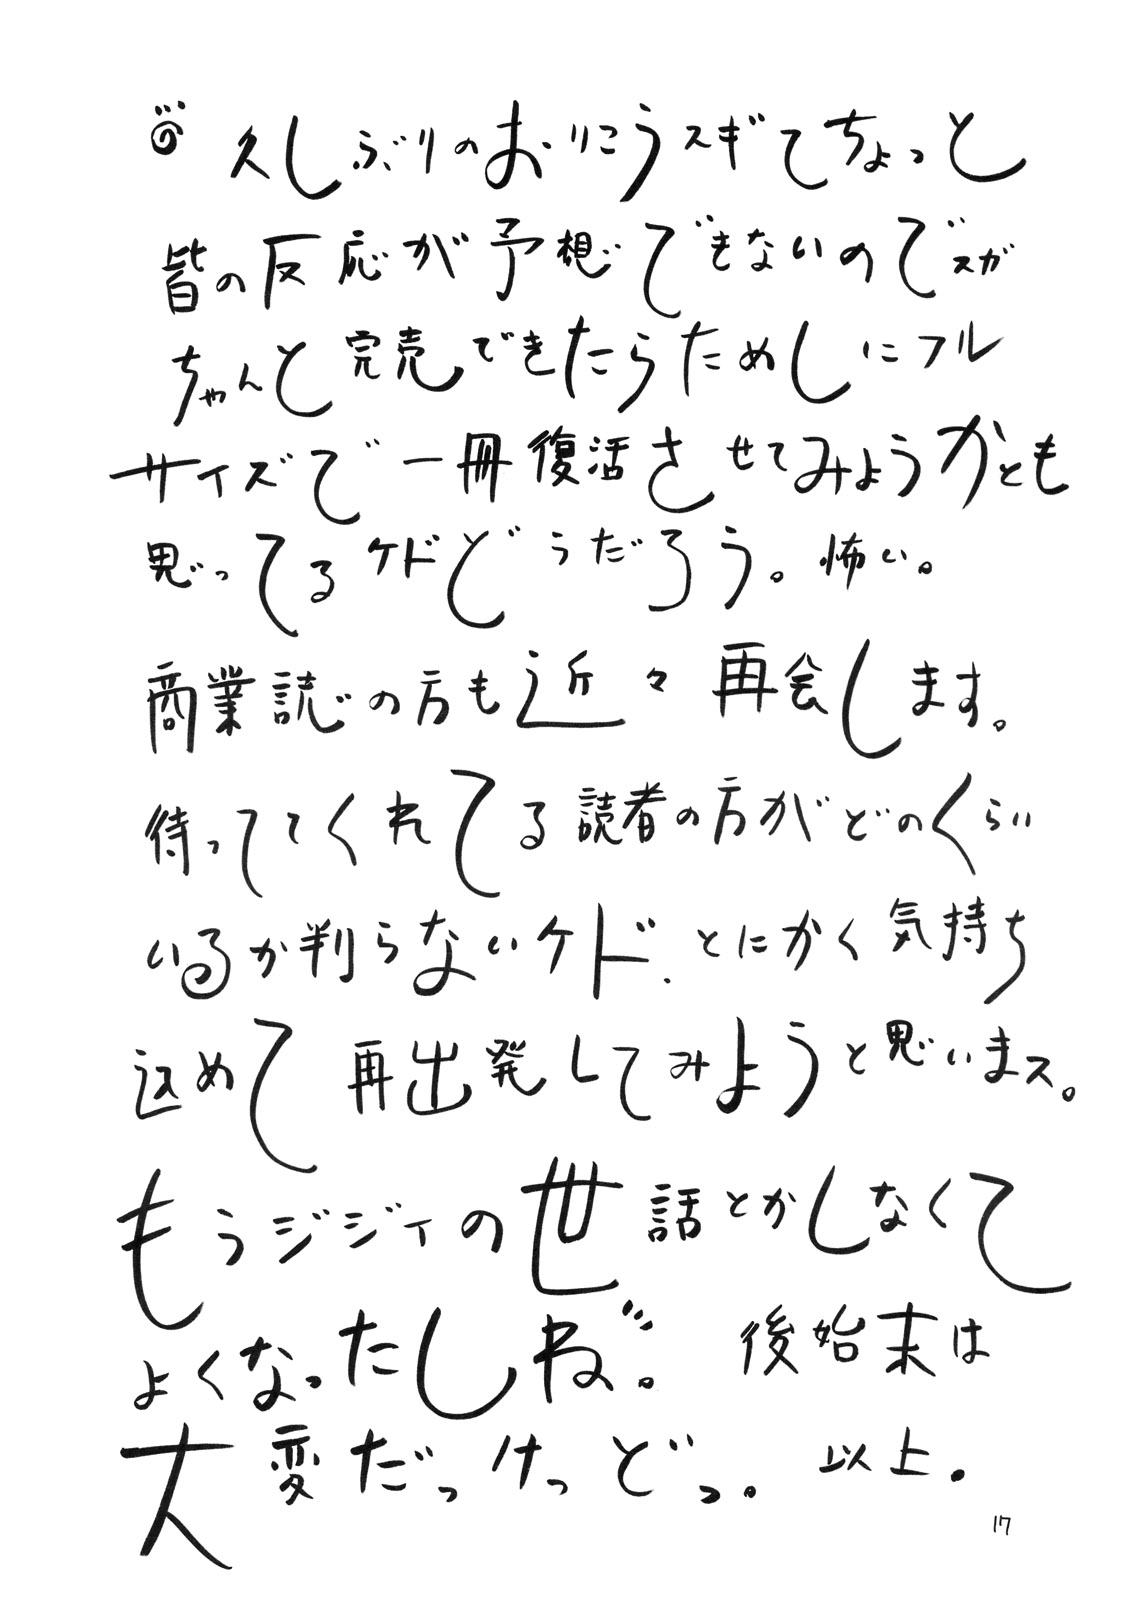 久しぶりのおりこうスギてちょっと
皆の反応が予想できないのでスガ
ちゃんと完売できたらためしにフル
サイズで一冊復活させてみようかとも
思ってるケドどうだろう。怖い。
商業誌の方も近々再会します。
待っててくれてる読者の方がどのくらい
いるか判らないケド、とにかく気持ち
込めて再出発してみようと思いまス。
もうジジィの世話とかしなくて
よくなったしね゛。後始末は
大変だっけっどっ。以上.
17